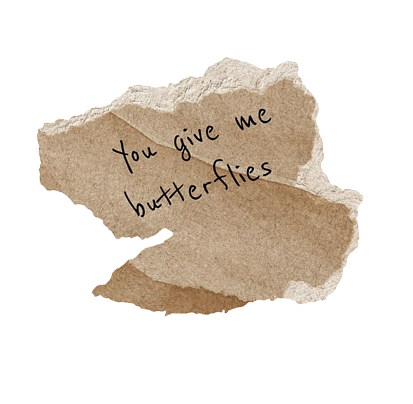 You give me
butterflies